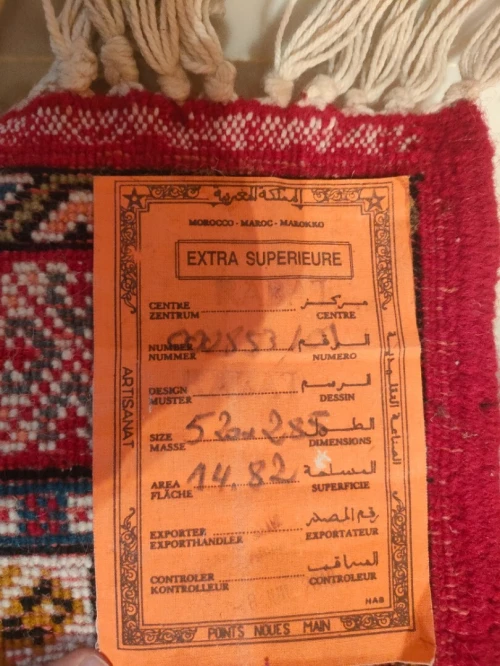 المملكة المغربية
MOROCCO - MAROC - MAROKKO
EXTRA SUPERIEURE
CENTRE مركز
ZENTRUM CENTRE
NUMBER الرقم
NUMMER NUMERO
DESIGN الرسم
MUSTER DESSIN
SIZE 520 x 285 الطول
MASSE DIMENSIONS
AREA 14,82 المساحة
FLÄCHE SUPERFICIE
EXPORTER رقم المصدر
EXPORTHANDLER EXPORTATEUR
CONTROLER المراقب
KONTROLLEUR CONTROLEUR
HAB
POINTS NOUES MAIN
ARTISANAT